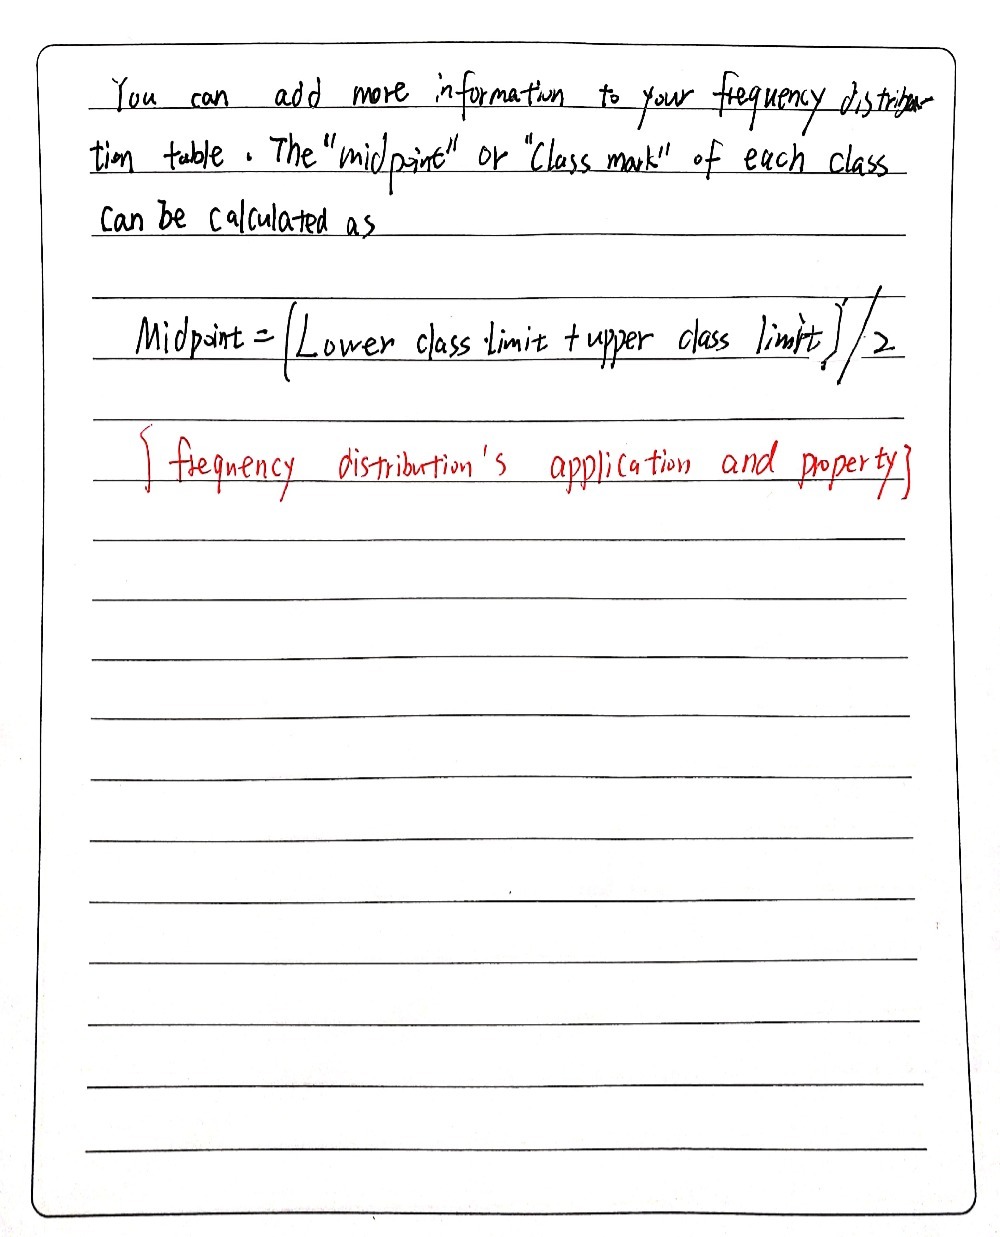 You can add more information to your frequency distribu-
tion table. The "midpoint" or "Class mark" of each class
can be calculated as
Midpoint = (Lower class limit + upper class limit)/2
[frequency distribution's application and property]